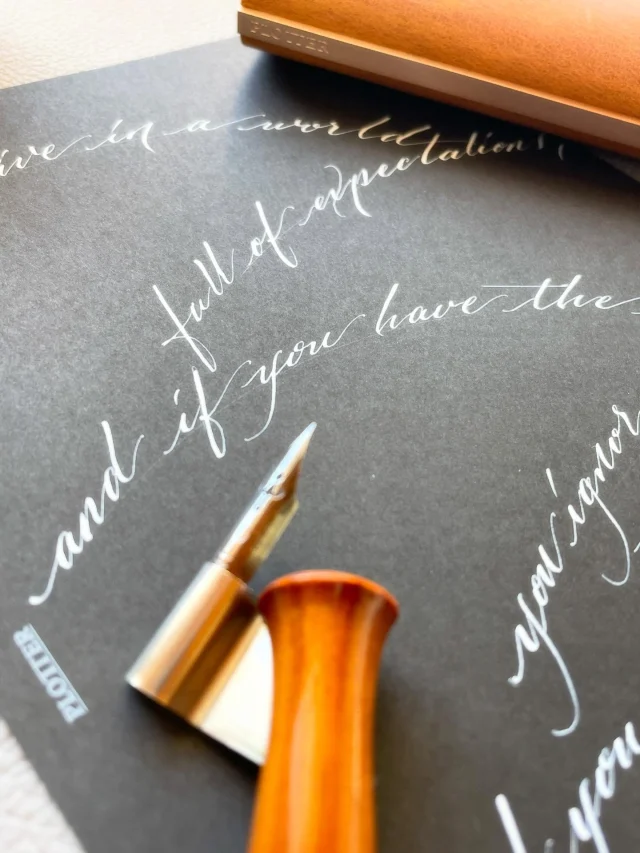 PLOTTER
ive in a world
full of expectations
and if you have the
you ignor
you
PLOTTER